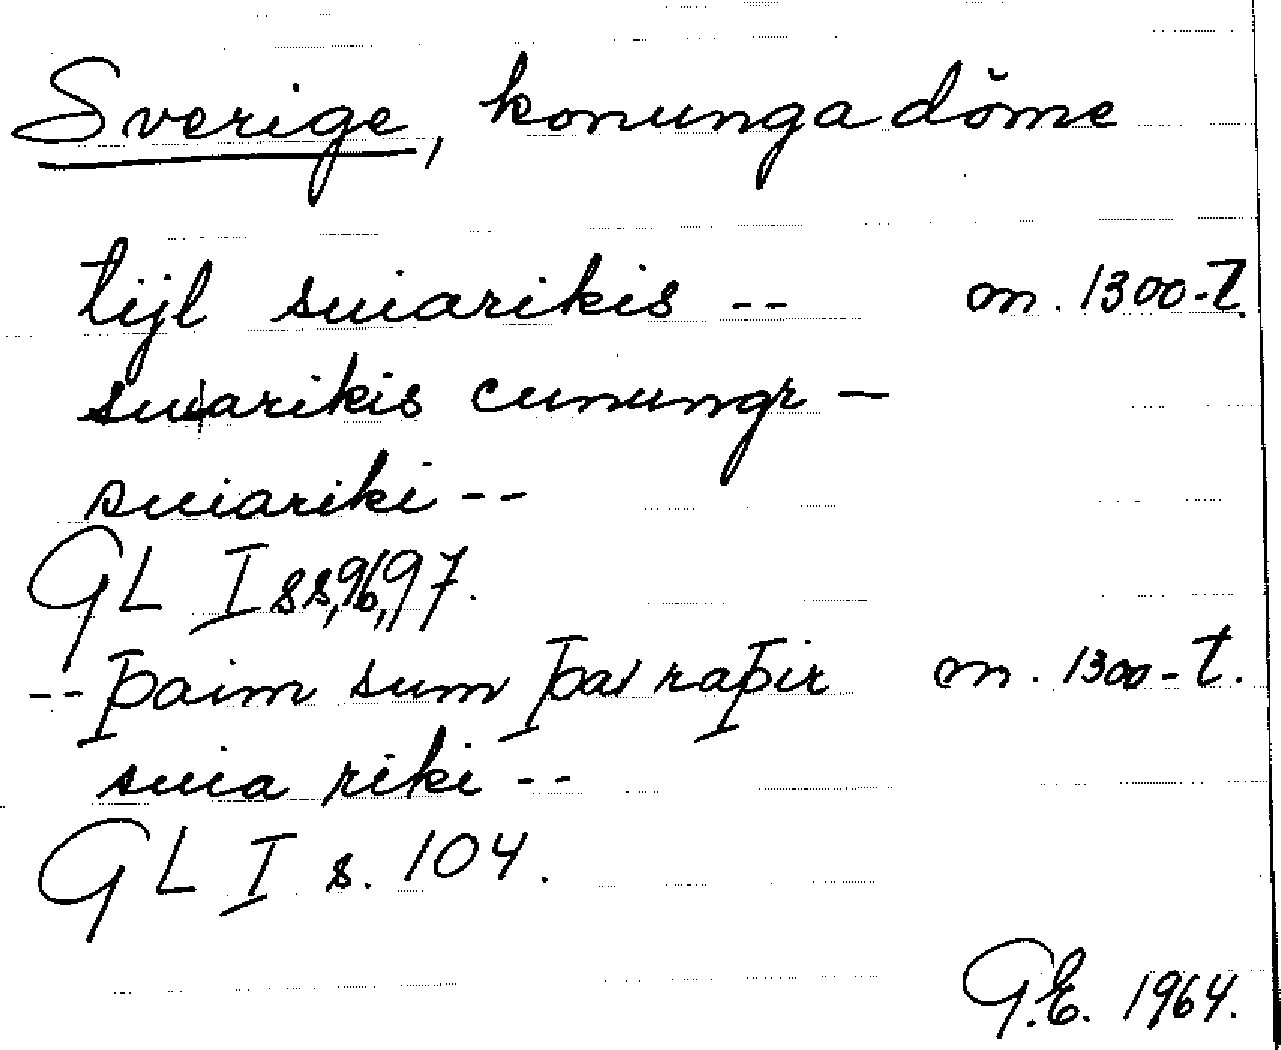 Sverige, konungadöme
tijl suiarikis -- m. 1300-t.
suiarikis cunungr —
suiariki --
GL I ss, 96, 97.
-- þaim sum þar raþir m. 1300-t.
suia riki --
GL I s. 104.
G.E. 1964.